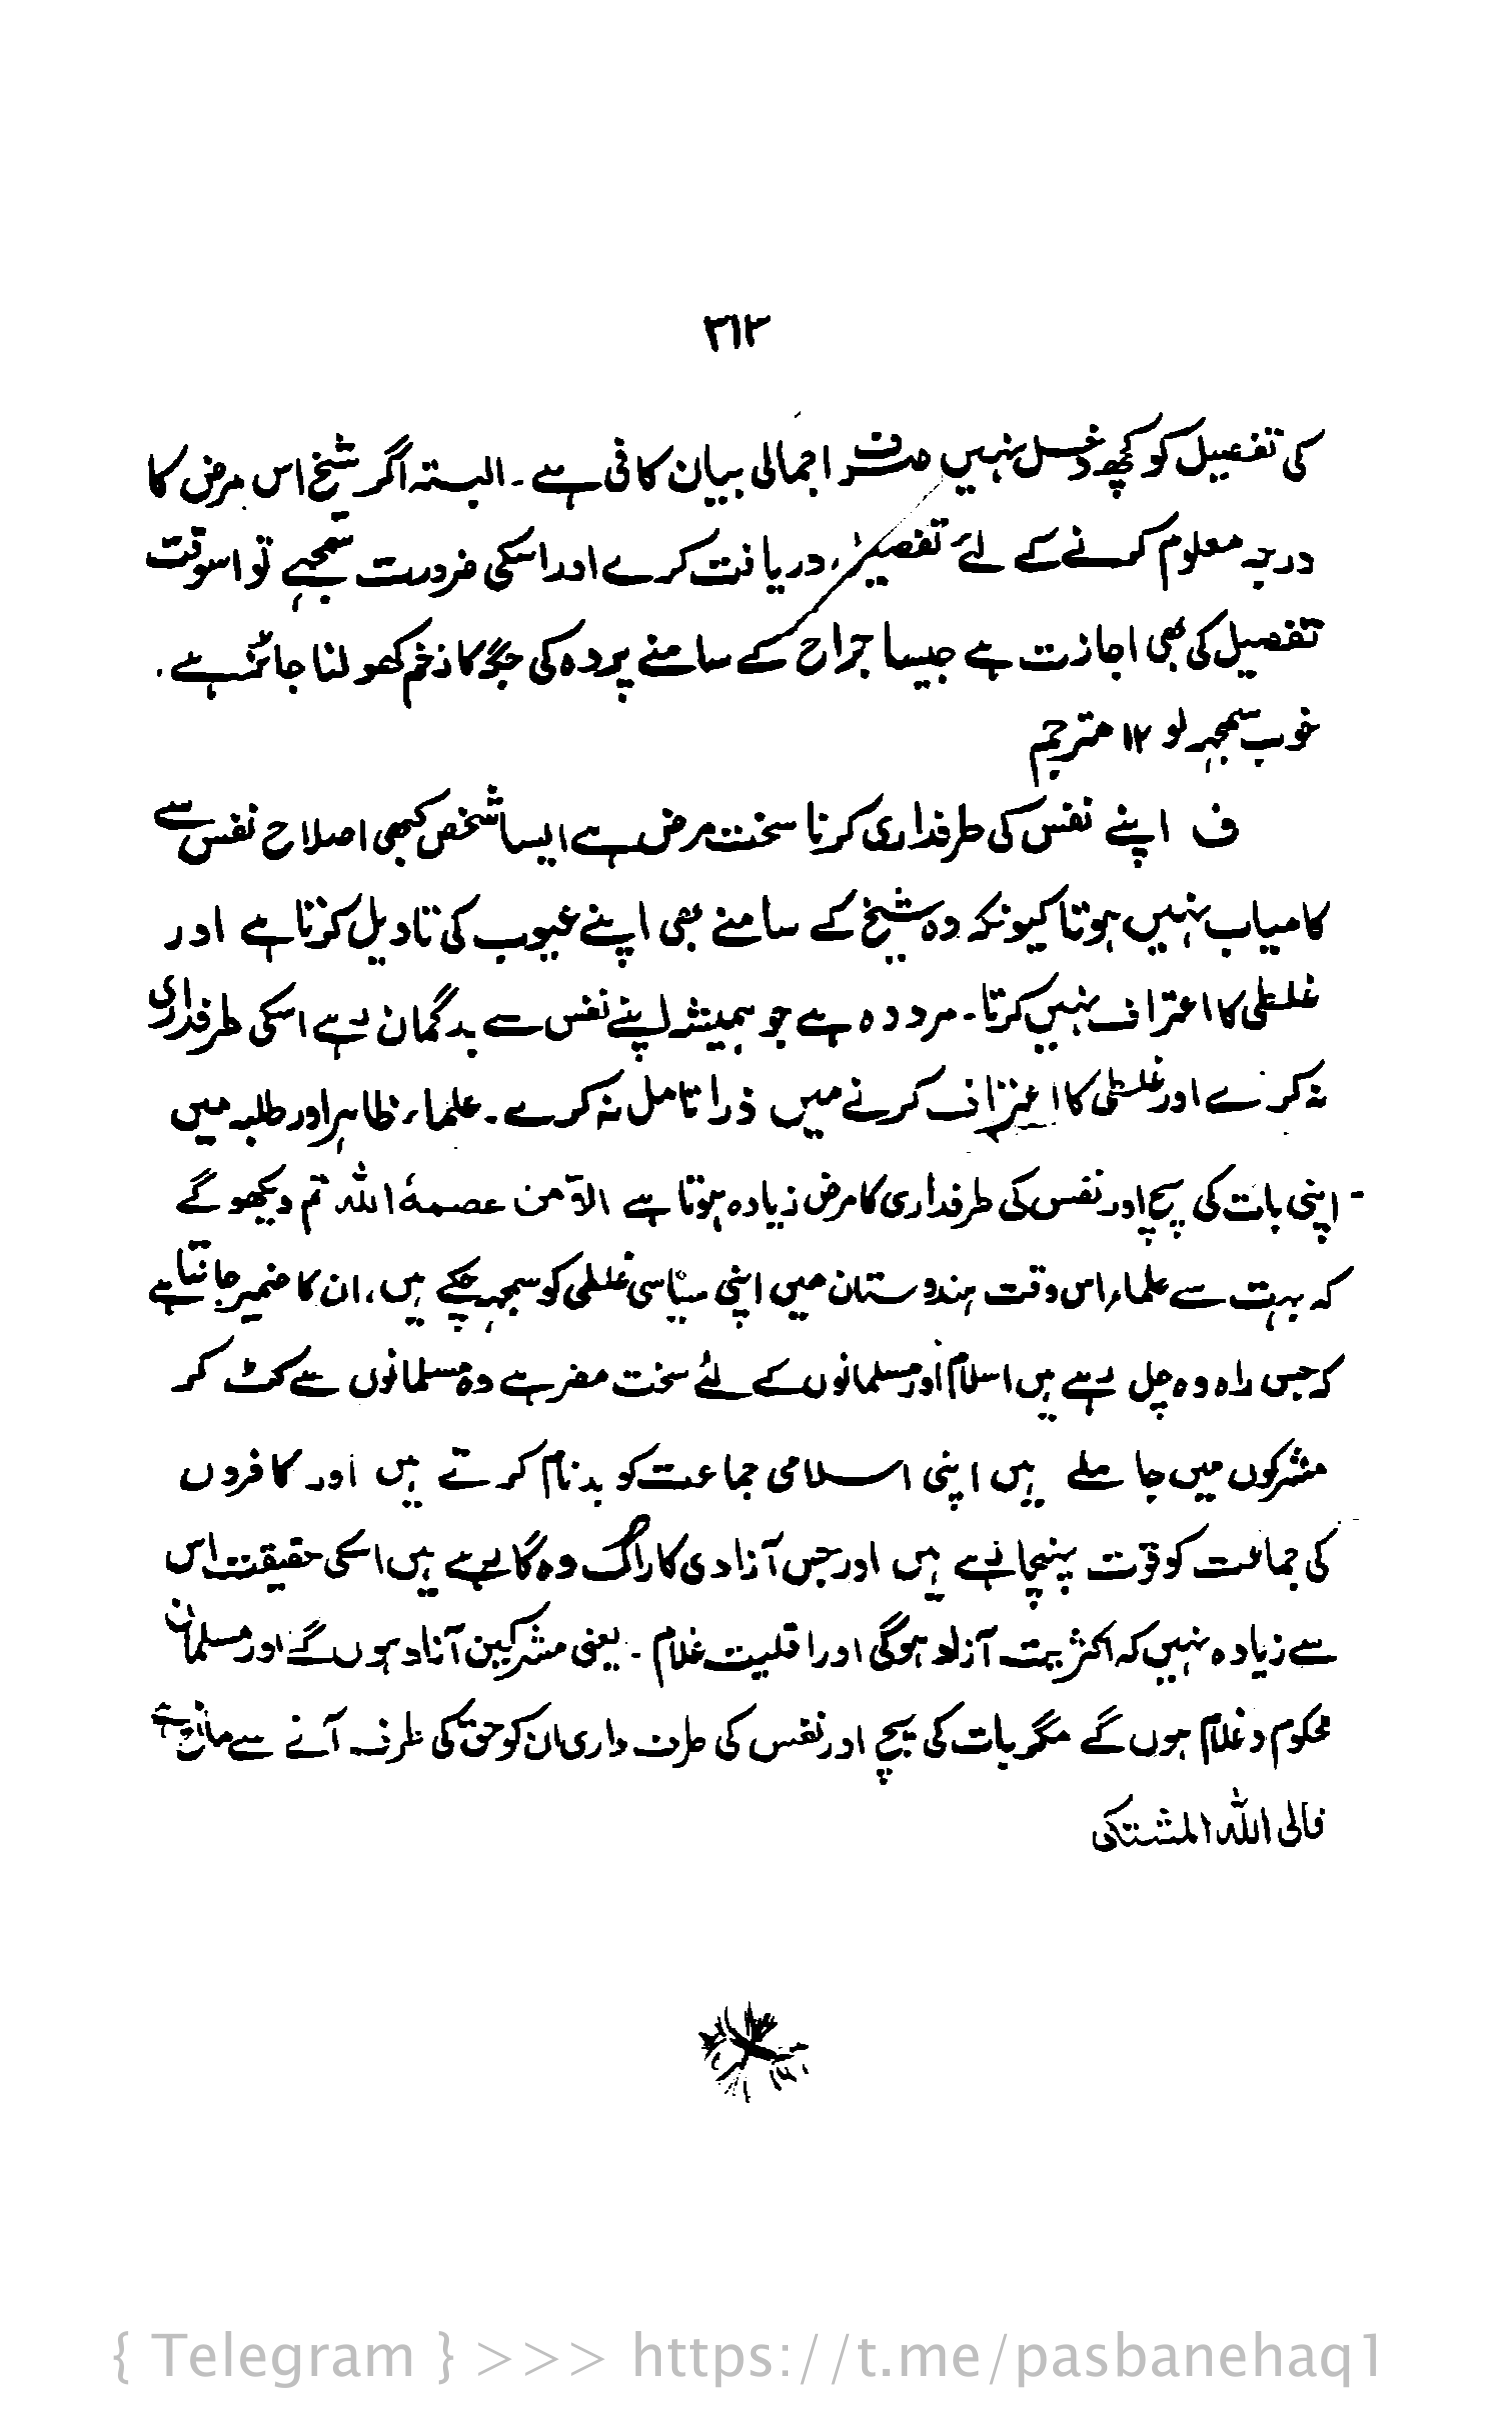 ۳۱۲
کی تفصیل کو کچھ دخل نہیں صرف اجمالی بیان کافی ہے ۔ البتہ اگر شیخ اس مرض کا
درجہ معلوم کرنے کے لئے تفصیل دریافت کرے اور اسکی ضرورت سمجہے تو اسوقت
تفصیل کی بھی اجازت ہے جیسا جراح کے سامنے پردہ کی جگہ کا زخم کھولنا جائز ہے .
خوب سمجہہ لو ۱۲ مترجم
ف اپنے نفس کی طرفداری کرنا سخت مرض ہے ایسا شخص کبھی اصلاح نفس سے
کامیاب نہیں ہوتا کیونکہ وہ شیخ کے سامنے بھی اپنے عیوب کی تاویل کرتا ہے اور
غلطی کا اعتراف نہیں کرتا ۔ مرد وہ ہے جو ہمیشہ اپنے نفس سے بدگمان رہے اسکی طرفداری
نہ کرے اور غلطی کا اعتراف کرنے میں ذرا تامل نہ کرے ۔ علماء ظاہر اور طلبہ میں
اپنی بات کی پچ اور نفس کی طرفداری کا مرض زیادہ ہوتا ہے الآ من عصمہٗ اللہ تم دیکھو گے
کہ بہت سے علماء اس وقت ہندوستان میں اپنی سیاسی غلطی کو سمجہہ چکے ہیں، ان کا ضمیر جانتا ہے
کہ جس راہ وہ چل رہے ہیں اسلام اور مسلمانوں کے لئے سخت مضر ہے وہ مسلمانوں سے کٹ کر
مشرکوں میں جا ملے ہیں اپنی اسلامی جماعت کو بدنام کرتے ہیں اور کافروں
کی جماعت کو قوت پہنچا رہے ہیں اور جس آزادی کا راگ وہ گا رہے ہیں اسکی حقیقت اس
سے زیادہ نہیں کہ اکثریت آزاد ہوگی اور اقلیت غلام ۔ یعنی مشرکین آزاد ہوں گے اور مسلمان
محکوم و غلام ہوں گے مگر بات کی پچ اور نفس کی طرف داری ان کو حق کی طرف آنے سے مانع ہے
فالی اللہ المشتکی
{ Telegram } >>> https://t.me/pasbanehaq1